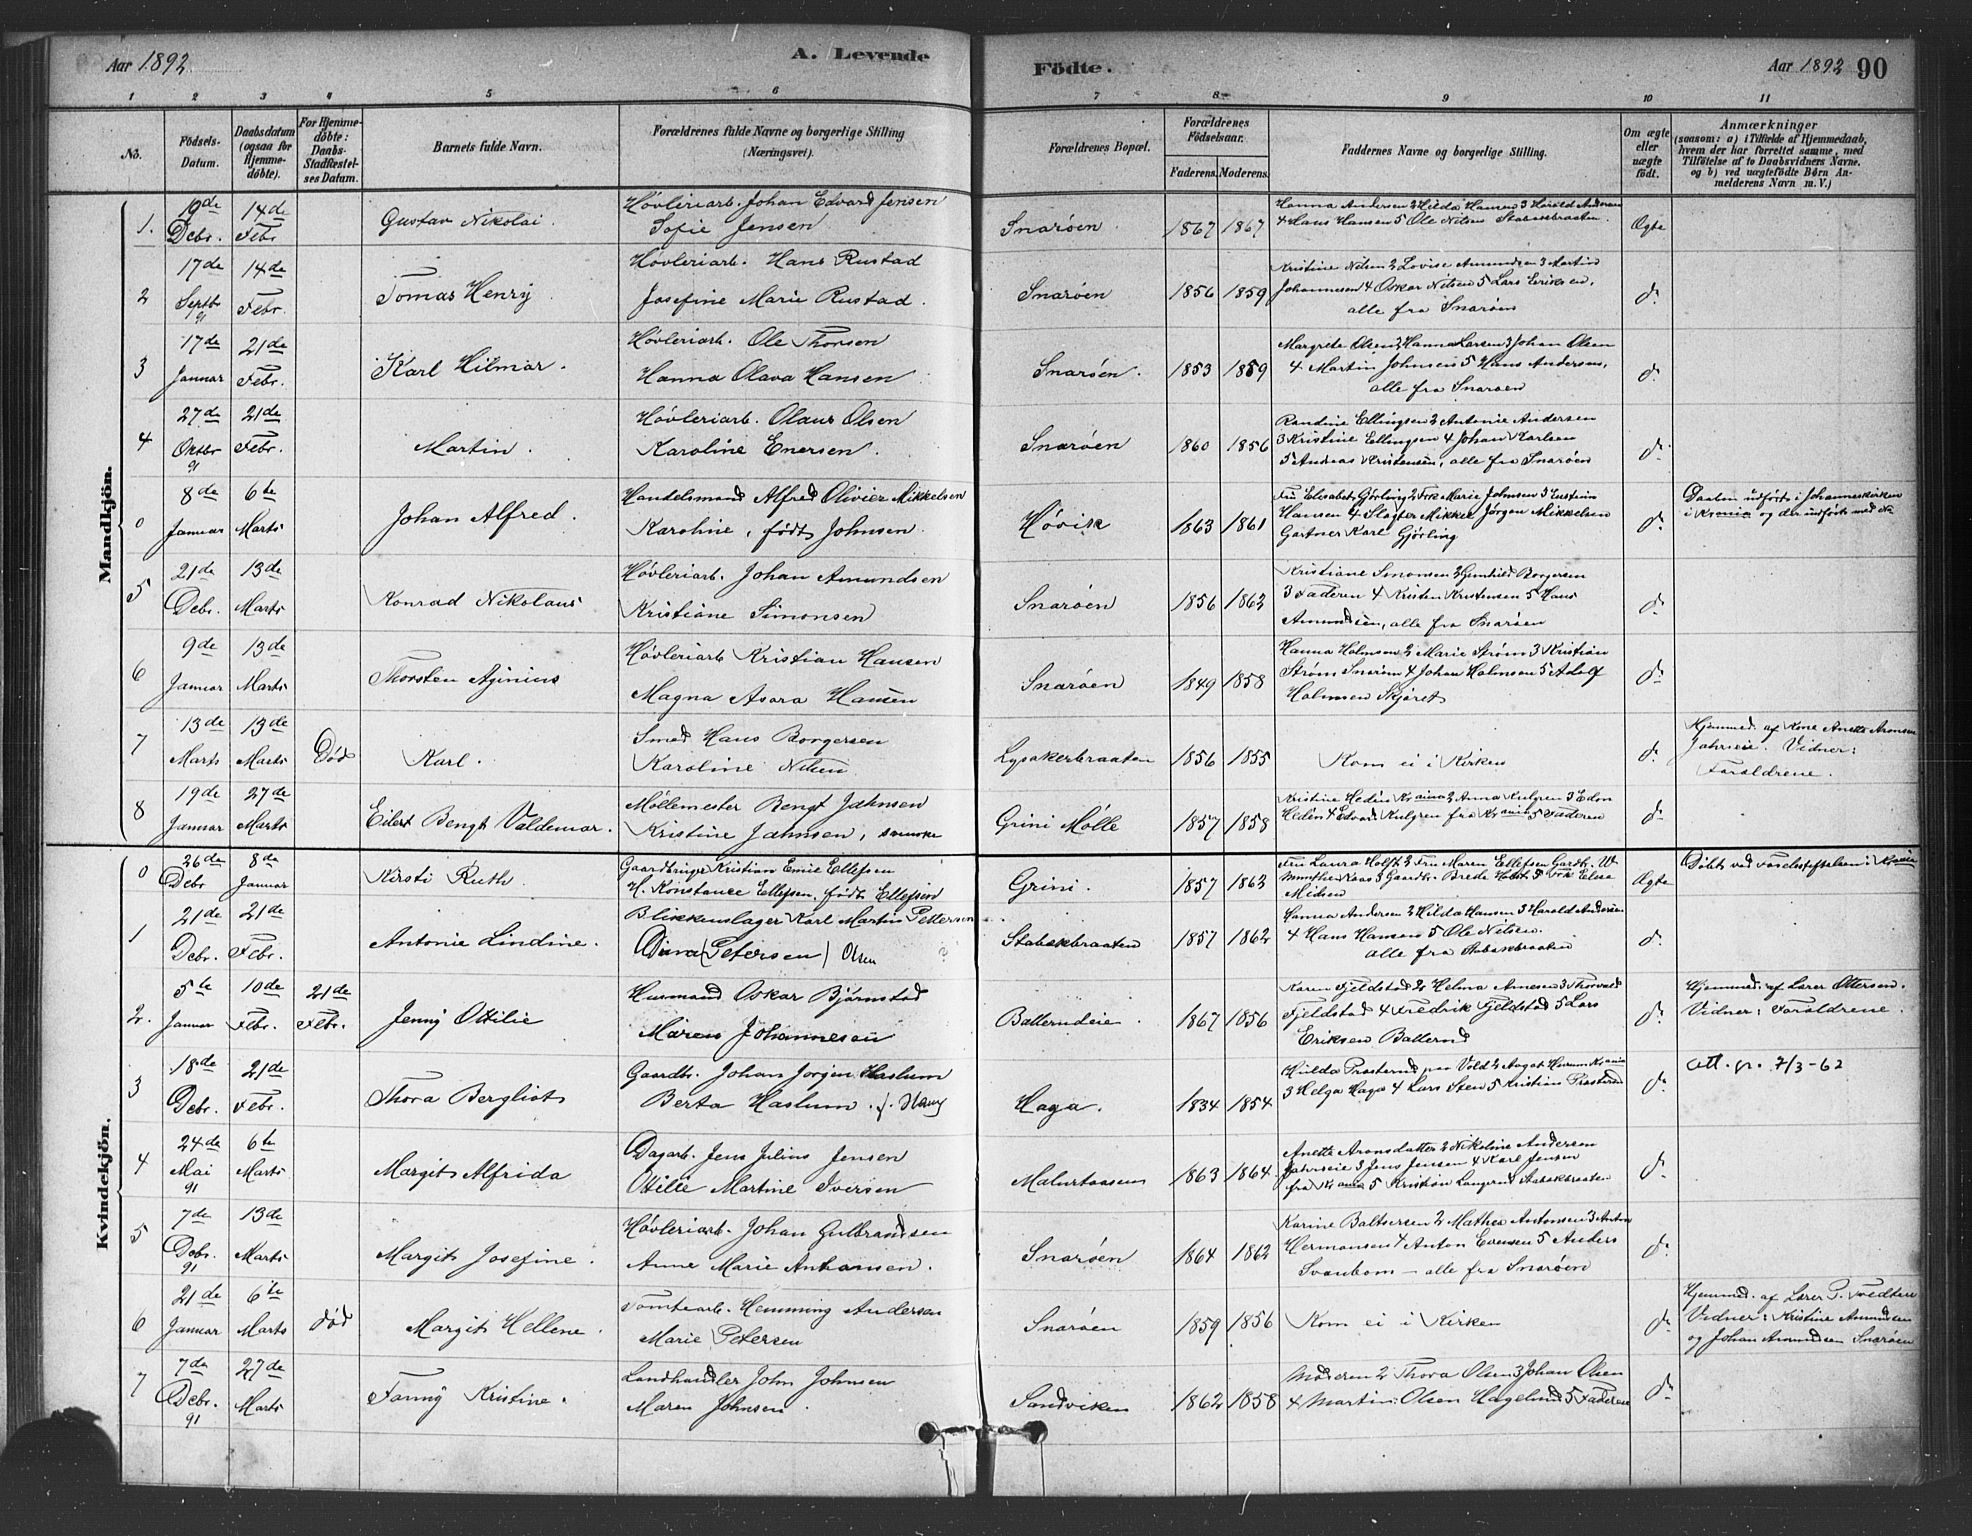 Aar 1892
A. Levende
Födte.
Aar 1892 90
1 2 3 4 5 6 7 8 9 10 11
No.
Födsels-Datum.
Daabsdatum (ogsaa for Hjemmedöbte).
For Hjemmedöbte: Daabs-Stadfæstelses Datum.
Barnets fulde Navn.
Forældrenes fulde Navne og borgerlige Stilling (Næringsvei).
Forældrenes Bopæl.
Forældrenes Födselsaar.
Faderens. Moderens.
Faddernes Navne og borgerlige Stilling.
Om ægte eller uægte födt.
Anmærkninger
(saasom: a) i Tilfælde af Hjemmedaab, hvem der har forrettet samme, med Tilföielse af to Daabsvidners Navne. og b) ved uægtefödte Börn Anmelderens Navn m. V.)
Mandkjön.
1. 19de Decbr. 14de Febr. Gustav Nikolai. Høvleriarb. Johan Edvard Jensen
Sofie Jensen Snarøen. 1867 1867 Hanna Andersen 2 Hilda Hansen 3 Harald Andersen
4 Hans Hansen 5 Ole Nilsen Stabækbraaten. Ægte
2 17de Septbr 91 14de Febr. Tomas Henry Høvleriarb. Hans Rustad
Josefine Marie Rustad. Snarøen 1856 1859 Kristine Nilsen 2 Lovise Amundsen 3 Martin
Johannesen 4 Oskar Nilsen 5 Lars Eriksen,
alle fra Snarøen do
3 17de Januar 21de Febr. Karl Hilmar. Høvleriarb. Ole Thorsen
Hanna Olava Hansen Snarøen. 1853 1859 Margrete Olsen 2 Hanna Larsen 3 Johan Olsen
4 Martin Johnsen 5 Hans Andersen,
alle fra Snarøen do
4 27de Oktbr 91 21de Febr. Martin. Høvleriarb. Olaus Olsen
Karoline Enersen. Snarøen 1860 1856 Randine Ellingsen 2 Antonie Andersen
3 Kristine Ellingsen 4 Johan Karlsen
5 Andreas Kristensen, alle fra Snarøen do
0 8de Januar 6te Marts Johan Alfred. Handelsmand Alfred Olivier Mikkelsen
Karoline, født Johnsen. Høvik 1863 1861 Fru Elisabet Gjörling 2 Frk Marie Johnsen 3
Hansen 4 Slagter Mikkel Jørgen Mikkelsen
Gartner Karl Gjörling do Daaben udført i Johanneskirken
i Krania og der indført med No
5 21de Debr. 13de Marts Konrad Nikolaus Høvleriarb. Johan Amundsen
Kristiane Simonsen Snarøen 1856 1862 Kristiane Simonsen 2 Gunhild Borgersen
3 Faderen 4 Kristen Kristensen 5 Hans
Amundsen, alle fra Snarøen do
6 9de Januar 13de Marts Thorsten Aginius Høvleriarb Kristian Hansen
Magna Asora Hansen Snarøen 1849 1858 Hanna Holmsen 2 Marie Strøm 3 Kristian
Strøm Snarøen 4 Johan Holmsen 5 Adolf
Holmsen Skjøret do
7 13de Marts 13de Marts Død Karl. Smed Hans Borgersen
Karoline Nilsen Lysakerbraaten 1856 1855 Kom ei i Kirken do Hjemmed. af Kone Anette Aronsen
Jahrseie. Vidner:
Forældrene.
8 19de Januar 27de Marts Eilert Bengt Valdemar. Møllemester Bengt Jahnsen
Kristine Jahnsen, svenske Grini Mølle 1857 1858 Kristine Hedén Krania 2 Anna Kulgren 3 Edon
Hedén 4 Edvard Kulgren fra Krania 5 Faderen do
Kvindekjön.
0 26de Debr 8de Januar Kirsti Ruth. Gaardbruger Kristian Emil Ellefsen
H. Konstance Ellefsen, født Ellefsen Grini. 1857 1863 Fru Laura Holst 2 Fru Maren Ellefsen Gardb. W.
Munthe Kaas 3 Gaardb. Brede Holst 5 Frk Elise
Midsen Ægte Døbt ved Fødselsstiftelsen i Krania
1 21de Debr. 21de Febr. Antonie Lindine. Blikkenslager Karl Martin Pettersen
Dina (Petersen) Olsen ? Stabækbraaten 1857 1862 Hanna Andersen 2 Hilda Hansen 3 Harald Andersen
4 Hans Hansen 5 Ole Nilsen.
alle fra Stabækbraaten do
2. 5te Januar 10de Febr. 21de Febr. Jenny Ottilie Husmand Oskar Bjørnstad
Maren Johannesen Ballerudeie. 1867 1856 Karen Fjeldstad 2 Helma Arnesen 3 Thorvald
Fjeldstad 4 Fredrik Fjeldstad 5 Lars
Eriksen Ballerud do Hjemmed. af Lærer Ottersen.
Vidner: Forældrene.
3 18de Debr. 21de Febr. Thora Bergliot Gaardb. Johan Jørgen Haslum
Berta Haslum. f. Haug Haga. 1834 1854 Hulda Prosterud paa Vold 2 Aagot Hurum Krania
3 Helga Haga 4 Lars Sten 5 Kristian Prosterud do att. gr. 7/3-62
4 24de Mai 91 6te Marts Margit Alfrida Dagarb. Jens Julius Jensen
Ottilie Martine Iversen Malurtaasen 1863 1864 Anette Aronsdatter 2 Nikoline Andersen
Jahrseie 3 Jens Jensen 4 Karl Jensen
fra Krania 5 Kristian Langerud Stabækbraaten do
5 7de Debr. 91 13de Marts Margit Josefine. Høvleriarb. Johan Gulbrandsen
Anne Marie Antonsen. Snarøen 1864 1862 Karine Baltsersen 2 Mathea Antonsen 3 Anton
Hermansen 4 Anton Evensen 5 Anders
Svanbom — alle fra Snarøen do
6 21de Januar 6te Marts død Margit Hellene. Tomtearb. Hemming Andersen
Marie Petersen Snarøen 1859 1856 Kom ei i Kirken do Hjemmed. af Lærer P. Tvedten
Vidner: Kristine Amundsen
og Johan Amundsen Snarøen
7 7de Debr. 91 27de Marts Fanny Kristine. Landhandler John Johnsen
Maren Johnsen. Sandviken 1862 1858 Moderen 2 Thora Olsen 3 Johan Olsen
4 Martin Olsen Hagelund 5 Faderen do